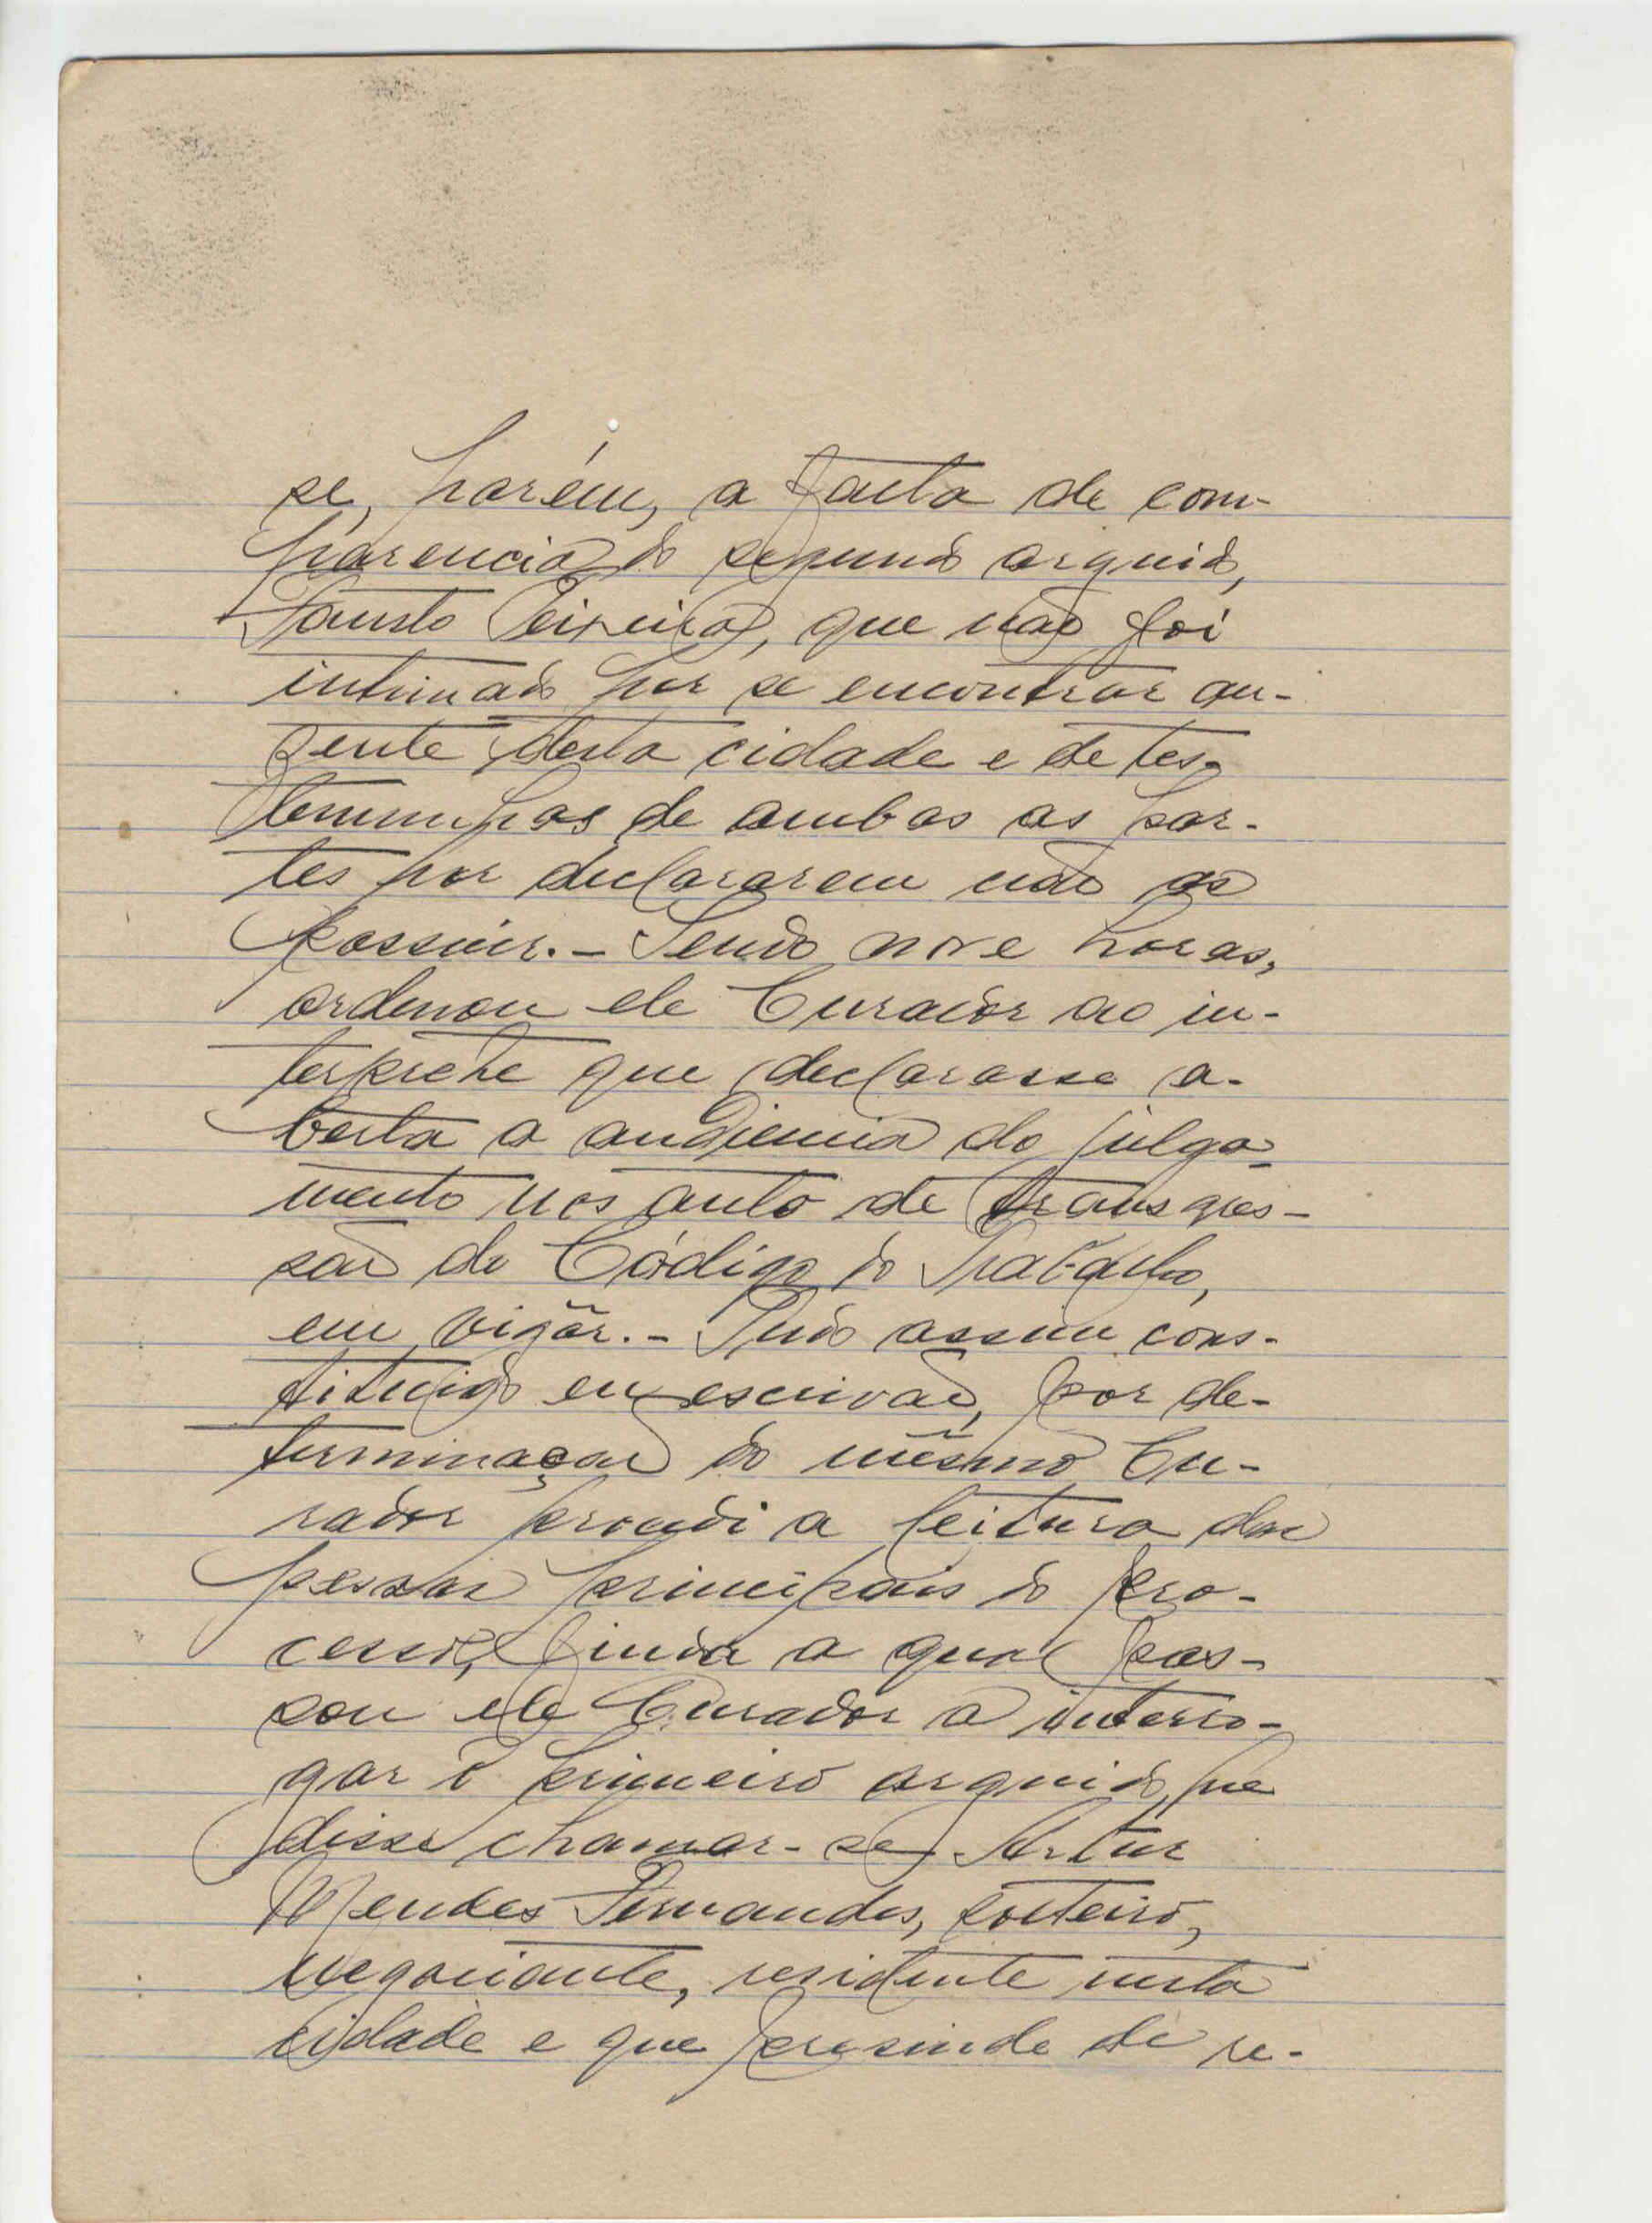 se, porém, a falta de com-
parencia do segundo arguido,
Fausto Teixeira, que não foi
intimado por se encontrar au-
zente desta cidade e de tes-
temunhas de ambas as par-
tes por declararem não as
possuir. - Sendo nove horas,
ordenou ele Curador ao in-
terprete que declarasse a-
berta a audiencia do julga-
mento nos auto de transgres-
são do Código do Trabalho,
em vigôr. - Tudo assim cons-
tituido eu escrivão, por de-
terminação do mêsmo Cu-
rador procedi a leitura das
pessas principais do pro-
cesso, finda a qual pas-
sou ele Curador a interro-
gar o primeiro arguido, que
disse chamar-se Artur
Mendes Fernandes, solteiro,
negociante, residente nesta
cidade e que presinde de re-